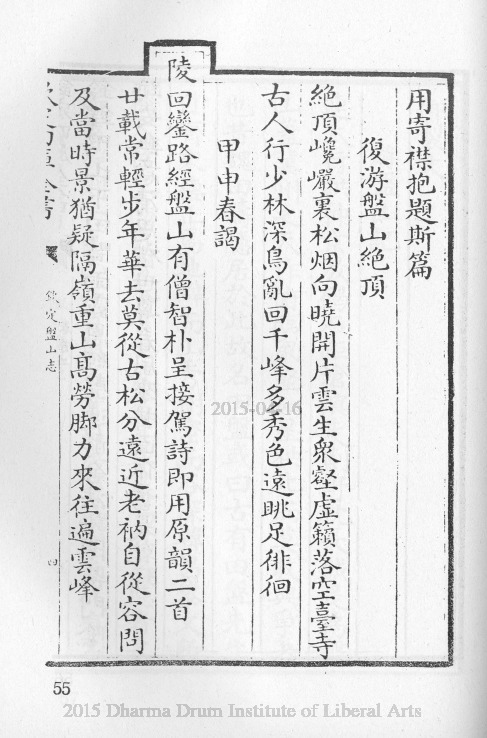 用寄襟抱題斯篇
復游盤山絶頂
絶頂巉巖裏松烟向曉開片雲生衆壑虛籟落空臺寺
古人行少林深鳥亂回千峰多秀色遠眺足徘徊
甲申春謁
陵回鑾路經盤山有僧智朴呈接駕詩即用原韻二首
廿載常輕步年華去莫從古松分遠近老衲自從容問
及當時景猶疑隔嶺重山髙勞脚力來往遍雲峰
欽定盤山志
四
2015-04-16
55
2015 Dharma Drum Institute of Liberal Arts